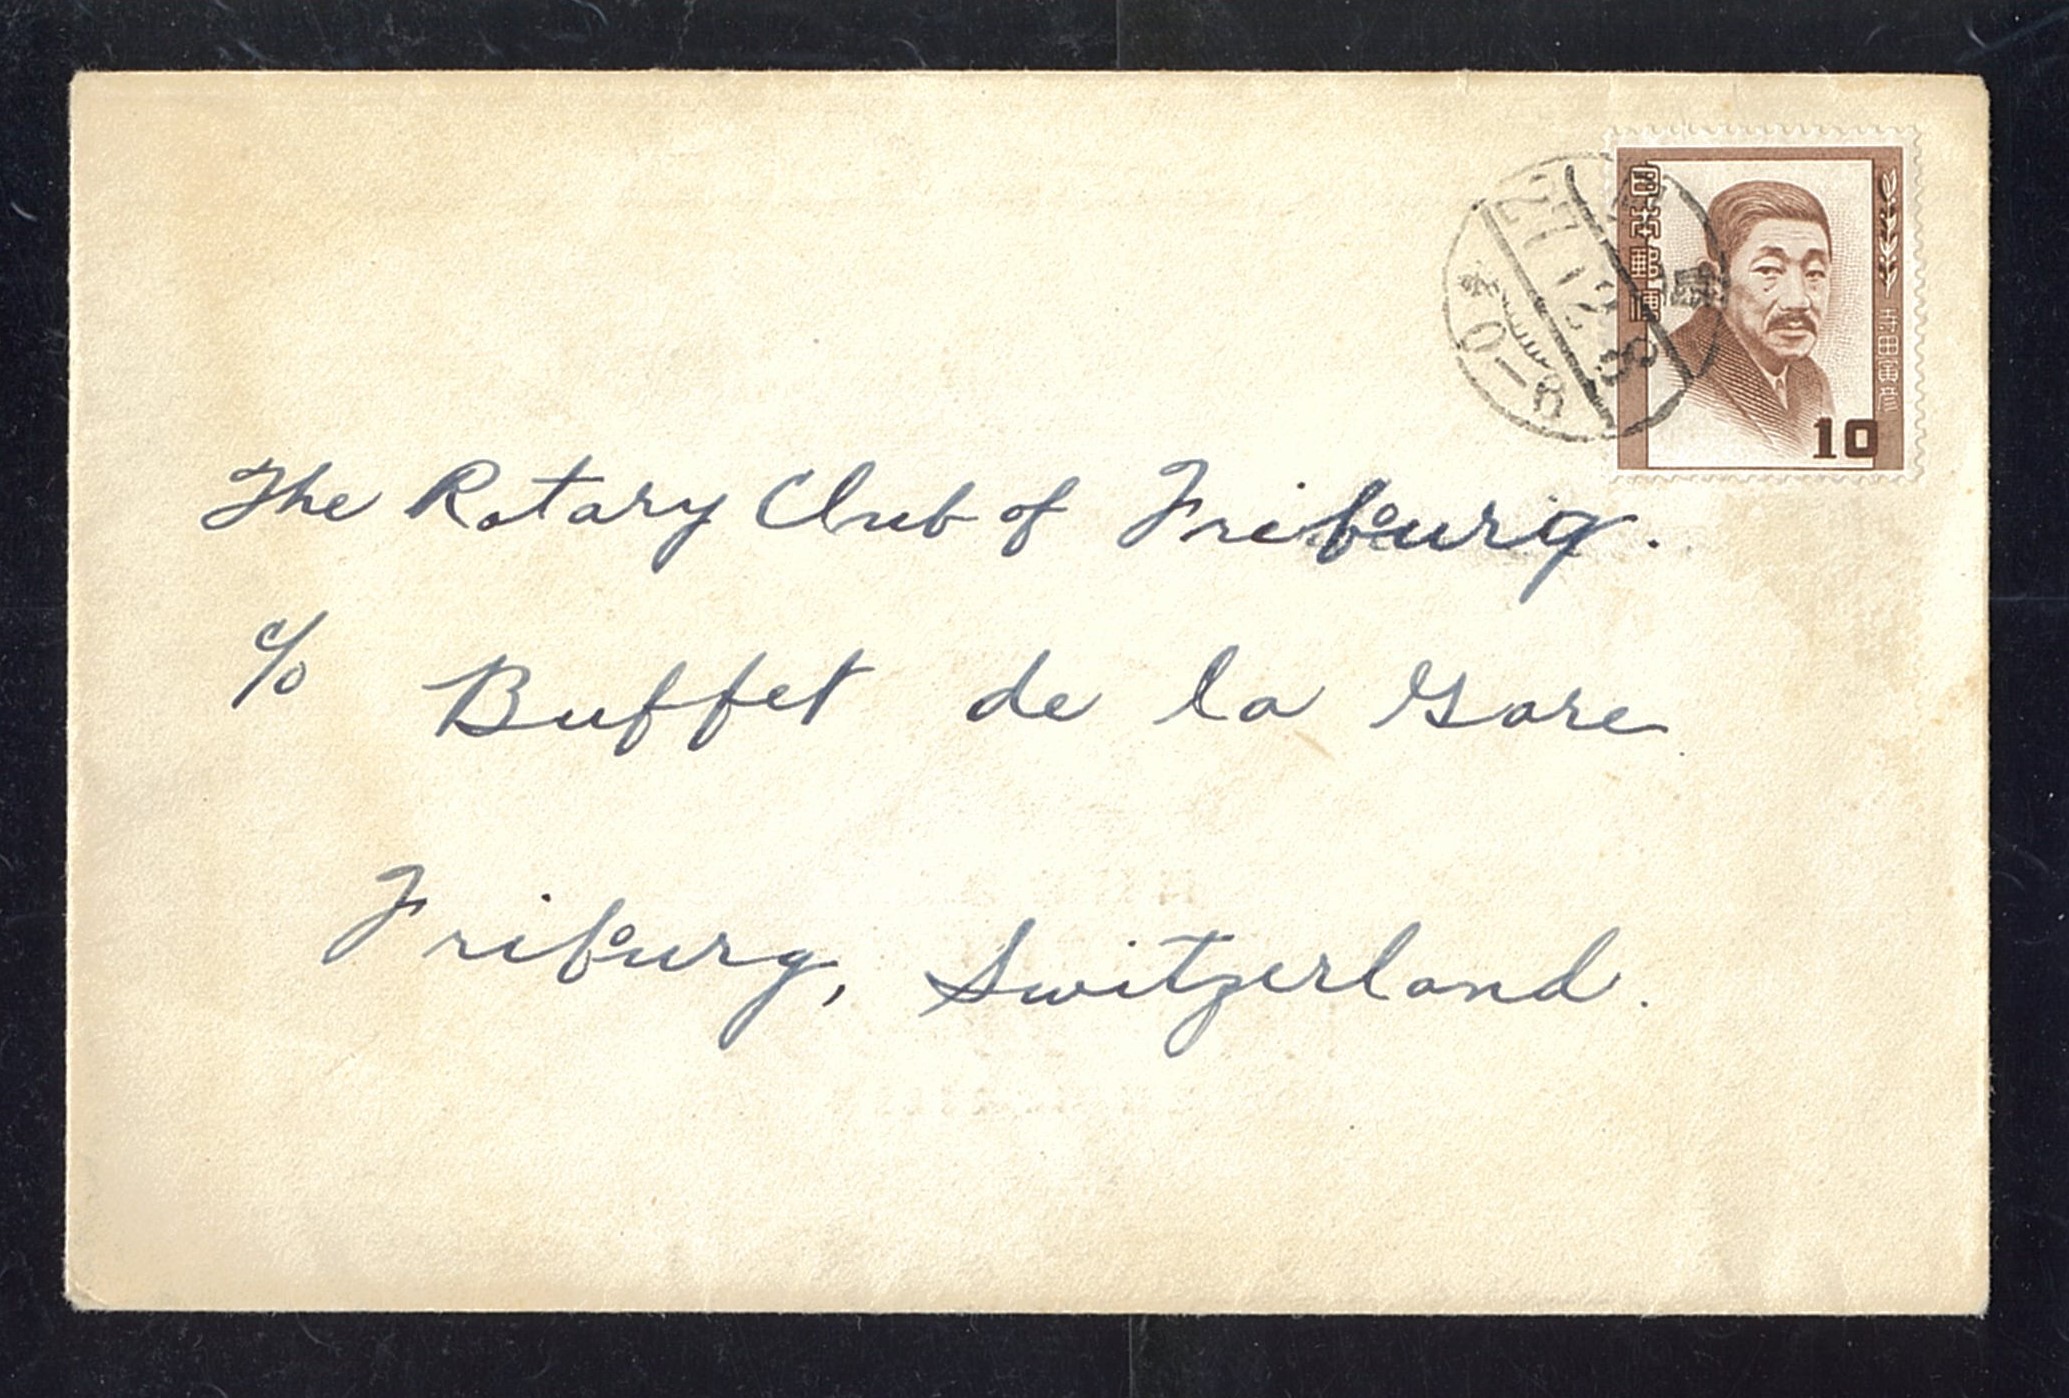 The Rotary Club of Friburg.
c/o Buffet de la Gare
Friburg, Switzerland.
日本郵便
寺田寅彦
10
27.12.8
0-8